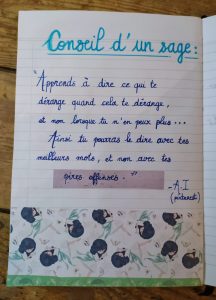 Conseil d'un sage :
"Apprends à dire ce qui te
dérange quand cela te dérange,
et non lorsque tu n'en peux plus...
Ainsi tu pourras le dire avec tes
meilleurs mots, et non avec tes
pires offenses."
- A.I
(pinterest)